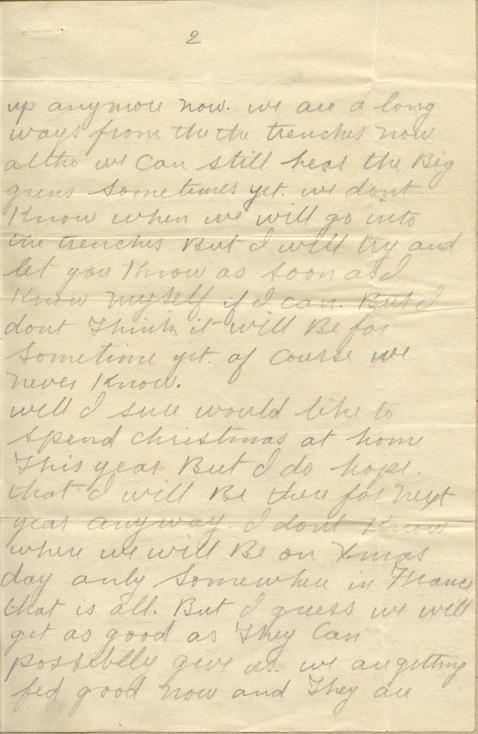 2
up anymore now. we are a long
ways from the the trenches now
altho we can still hear the Big
guns sometimes yet. we dont
Know when we will go into
the trenches But I will try and
let you Know as soon as I
Know myself if I can. But I
dont Think it will Be for
sometime yet. of course we
never Know.
well I sure would like to
spend christmas at home
This year But I do hope.
that I will Be there for next
year anyway. I dont Know
where we will Be on Xmas
day only somewhere in France
that is all. But I guess we will
get as good as They can
possiblly give us. we are getting
fed good now and They are